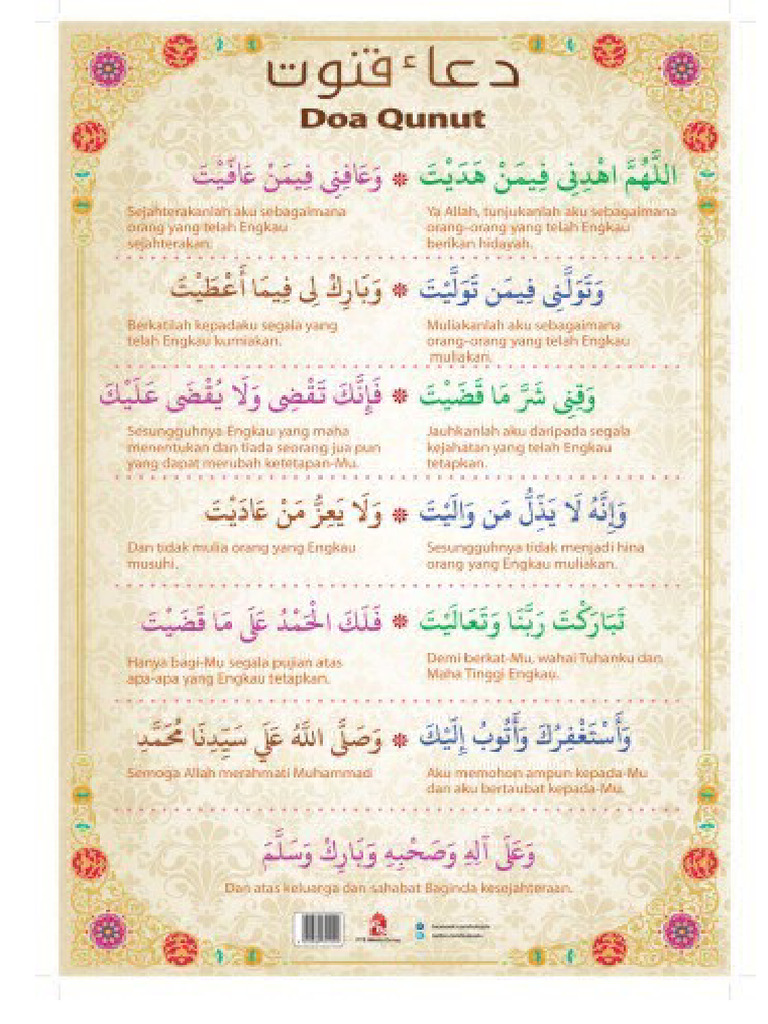 دعاء قنوت
Doa Qunut
اللَّهُمَّ اهْدِنِي فِيمَنْ هَدَيْتَ * وَعَافِنِي فِيمَنْ عَافَيْتَ
Ya Allah, tunjukanlah aku sebagaimana
orang-orang yang telah Engkau
berikan hidayah.
Sejahterakanlah aku sebagaimana
orang yang telah Engkau
sejahterakan.
وَتَوَلَّنِي فِيمَن تَوَلَّيْتَ * وَبَارِكْ لِي فِيمَا أَعْطَيْتَ
Muliakanlah aku sebagaimana
orang-orang yang telah Engkau
muliakan.
Berkatilah kepadaku segala yang
telah Engkau kurniakan.
وَقِنِي شَرَّ مَا قَضَيْتَ * فَإِنَّكَ تَقْضِى وَلَا يُقْضَى عَلَيْكَ
Jauhkanlah aku daripada segala
kejahatan yang telah Engkau
tetapkan.
Sesungguhnya Engkau yang maha
menentukan dan tiada seorang jua pun
yang dapat merubah ketetapan-Mu.
وَإِنَّهُ لَا يَذِلُّ مَن وَالَيْتَ * وَلَا يَعِزُّ مَنْ عَادَيْتَ
Sesungguhnya tidak menjadi hina
orang yang Engkau muliakan.
Dan tidak mulia orang yang Engkau
musuhi.
تَبَارَكْتَ رَبَّنَا وَتَعَالَيْتَ * فَلَكَ الْحَمْدُ عَلَى مَا قَضَيْتَ
Demi berkat-Mu, wahai Tuhanku dan
Maha Tinggi Engkau.
Hanya bagi-Mu segala pujian atas
apa-apa yang Engkau tetapkan.
وَأَسْتَغْفِرُكَ وَأَتُوبُ إِلَيْكَ * وَصَلَّى اللَّهُ عَلَى سَيِّدِنَا مُحَمَّدِ
Aku memohon ampun kepada-Mu
dan aku bertaubat kepada-Mu.
Semoga Allah merahmati Muhammadi
وَعَلَى آلِهِ وَصَحْبِهِ وَبَارِكْ وَسَلَّمَ
Dan atas keluarga dan sahabat Baginda kesejahteraan.